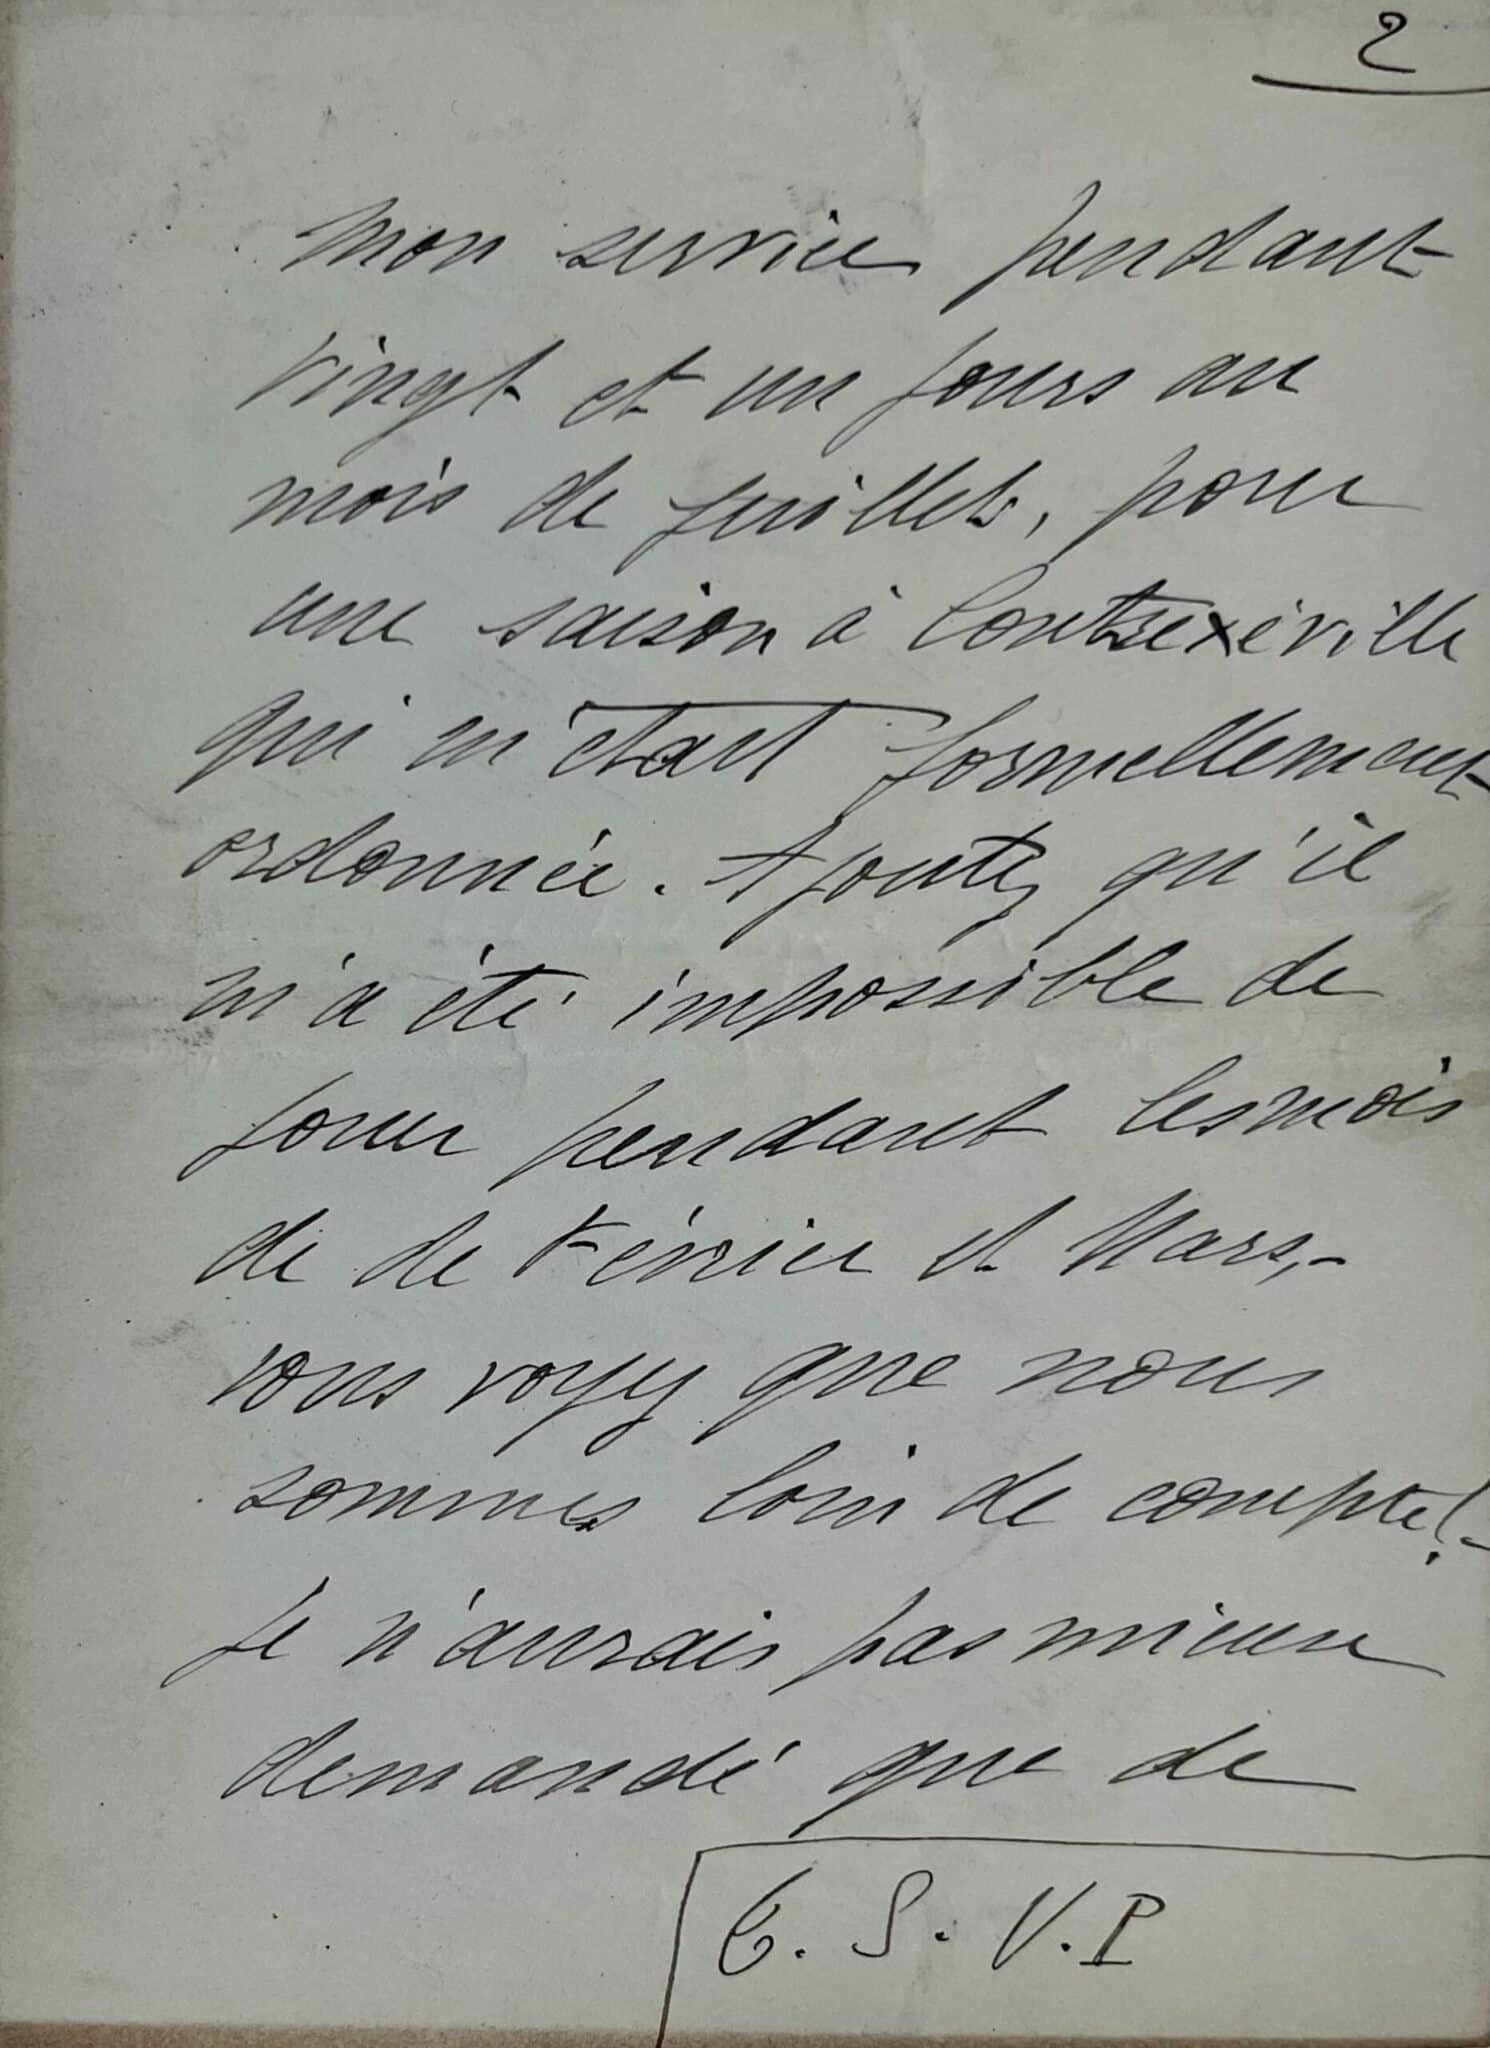 2
mon service pendant
vingt et un jours au
mois de juillet, pour
une saison à Contrexéville
qui m'était formellement
ordonnée. Ajoutez qu'il
m'a été impossible de
jouer pendant les mois
de de Février et Mars,-
vous voyez que nous
sommes loin de compte!-
Je n'aurais pas mieux
demandé que de
T. S. V. P